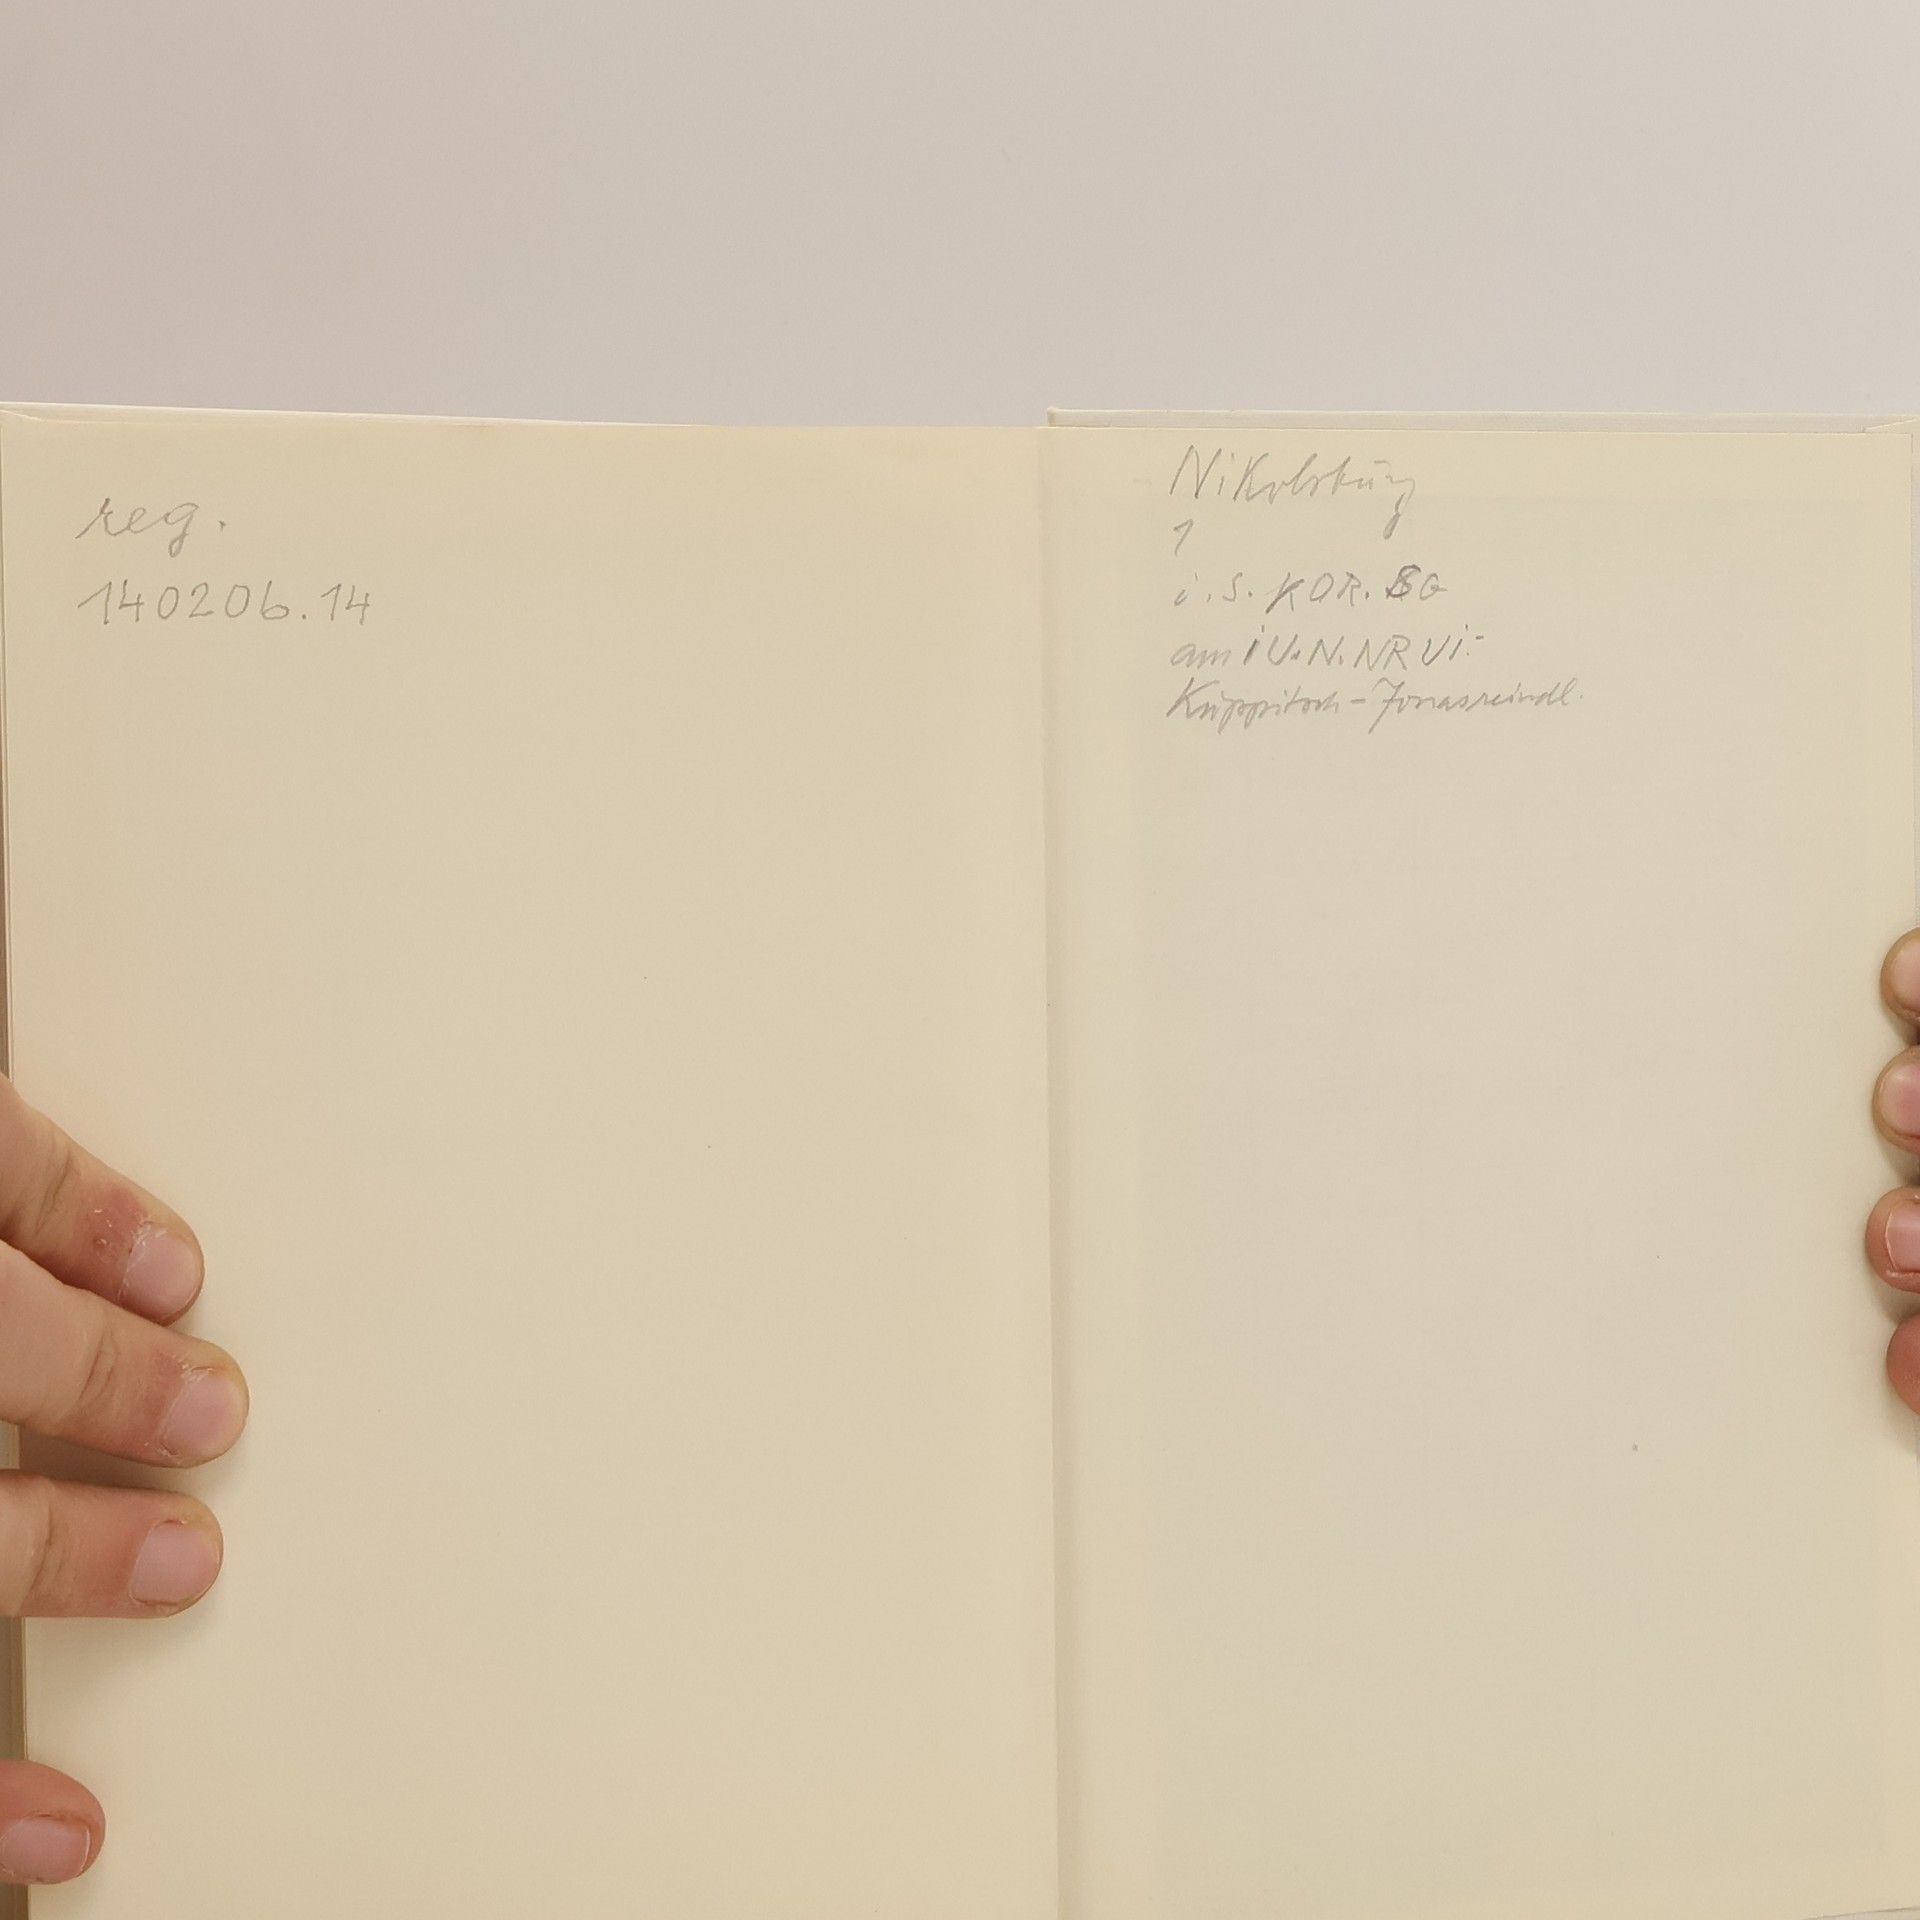 reg.
140206.14
Nikolsburg
1
i.S. KOR. SG
am iU.N.NR Vi.-
Kuppitsch-Jonasreindl.